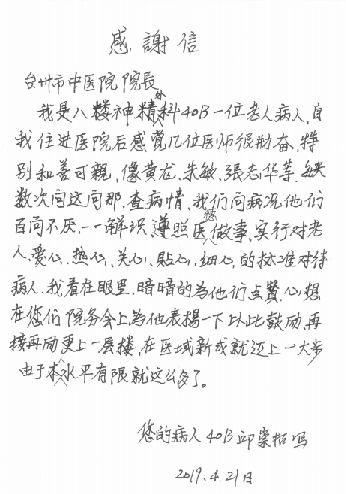 感謝信
台州市中医院院长
我是八楼神精外科40B一位老人病人,自
我住进医院后感覚几位医师很勤奋,特
别和善可親,像黄龙、朱敏、張志华等,每天
数次问这问那,查病情,我们问病况他们
百问不厌,一一解 遵照医德做事,实行对老
人、爱心、热心、关心、貼心、细心,的标准对待
病人,我看在眼里,暗暗的為他们点贊,心想
在您们院务会上為他表揚一下以此鼓励再
接再励更上一层楼,在医 新成就迈上一大步
由于本水平有限就这么多了。
您的病人40B 邱 写
2019.4.21日